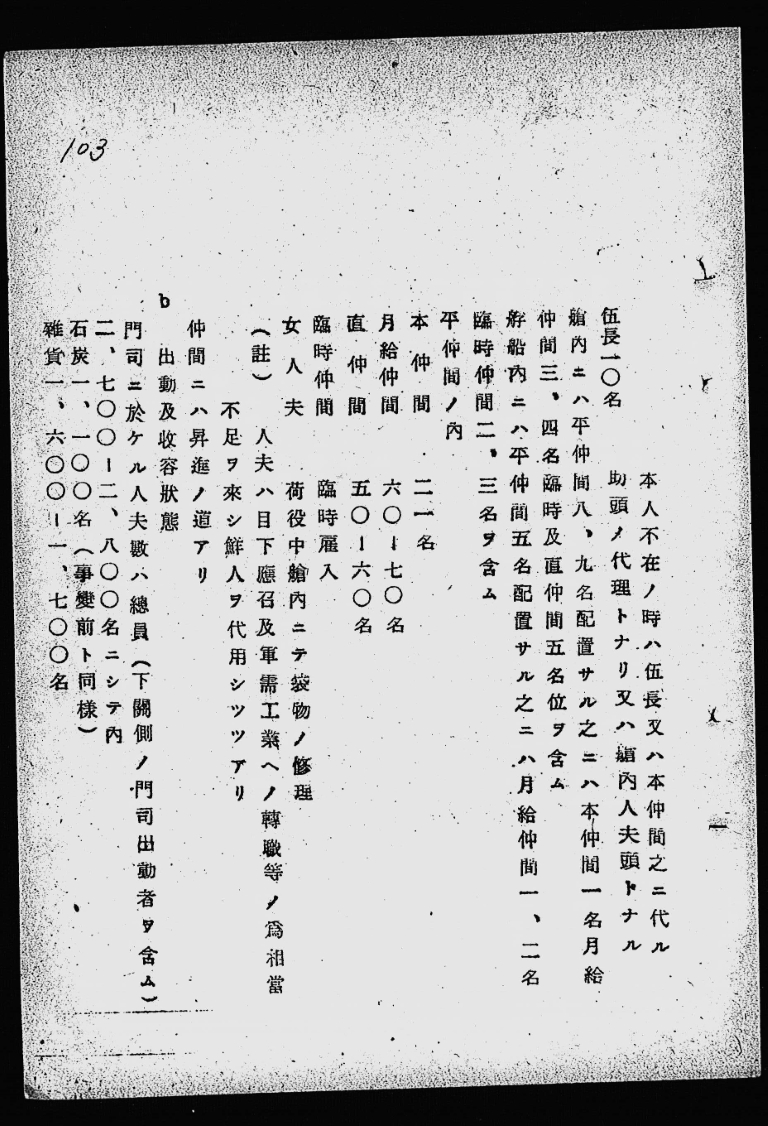 103
本人不在ノ時ハ伍長又ハ本仲間之ニ代ル
伍長一〇名　助頭ノ代理トナリ又ハ艙内人夫頭トナル
艙内ニハ平仲間八、九名配置サル之ニハ本仲間一名月給
仲間三、四名臨時及直仲間五名位ヲ含ム
艀船内ニハ平仲間五名配置サル之ニハ月給仲間一、二名
臨時仲間二、三名ヲ含ム
平仲間ノ内
本仲間　二一名
月給仲間　六〇ー七〇名
直仲間　五〇ー六〇名
臨時仲間　臨時雇入
女人夫　荷役中艙内ニテ袋物ノ修理
（註）　人夫ハ目下應召及軍需工業ヘノ轉職等ノ爲相當
不足ヲ來シ鮮人ヲ代用シツツアリ
仲間ニハ昇進ノ道アリ
b　出動及收容狀態
門司ニ於ケル人夫數ハ總員（下關側ノ門司出動者ヲ含ム）
二、七〇〇ー二、八〇〇名ニシテ內
石炭一、一〇〇名（事變前ト同樣）
雜貨一、六〇〇ー一、七〇〇名